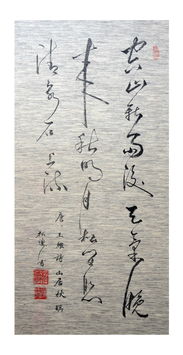 空山新雨後天氣晚
来秋明月松間照
清泉石上流
唐王維詩山居秋暝